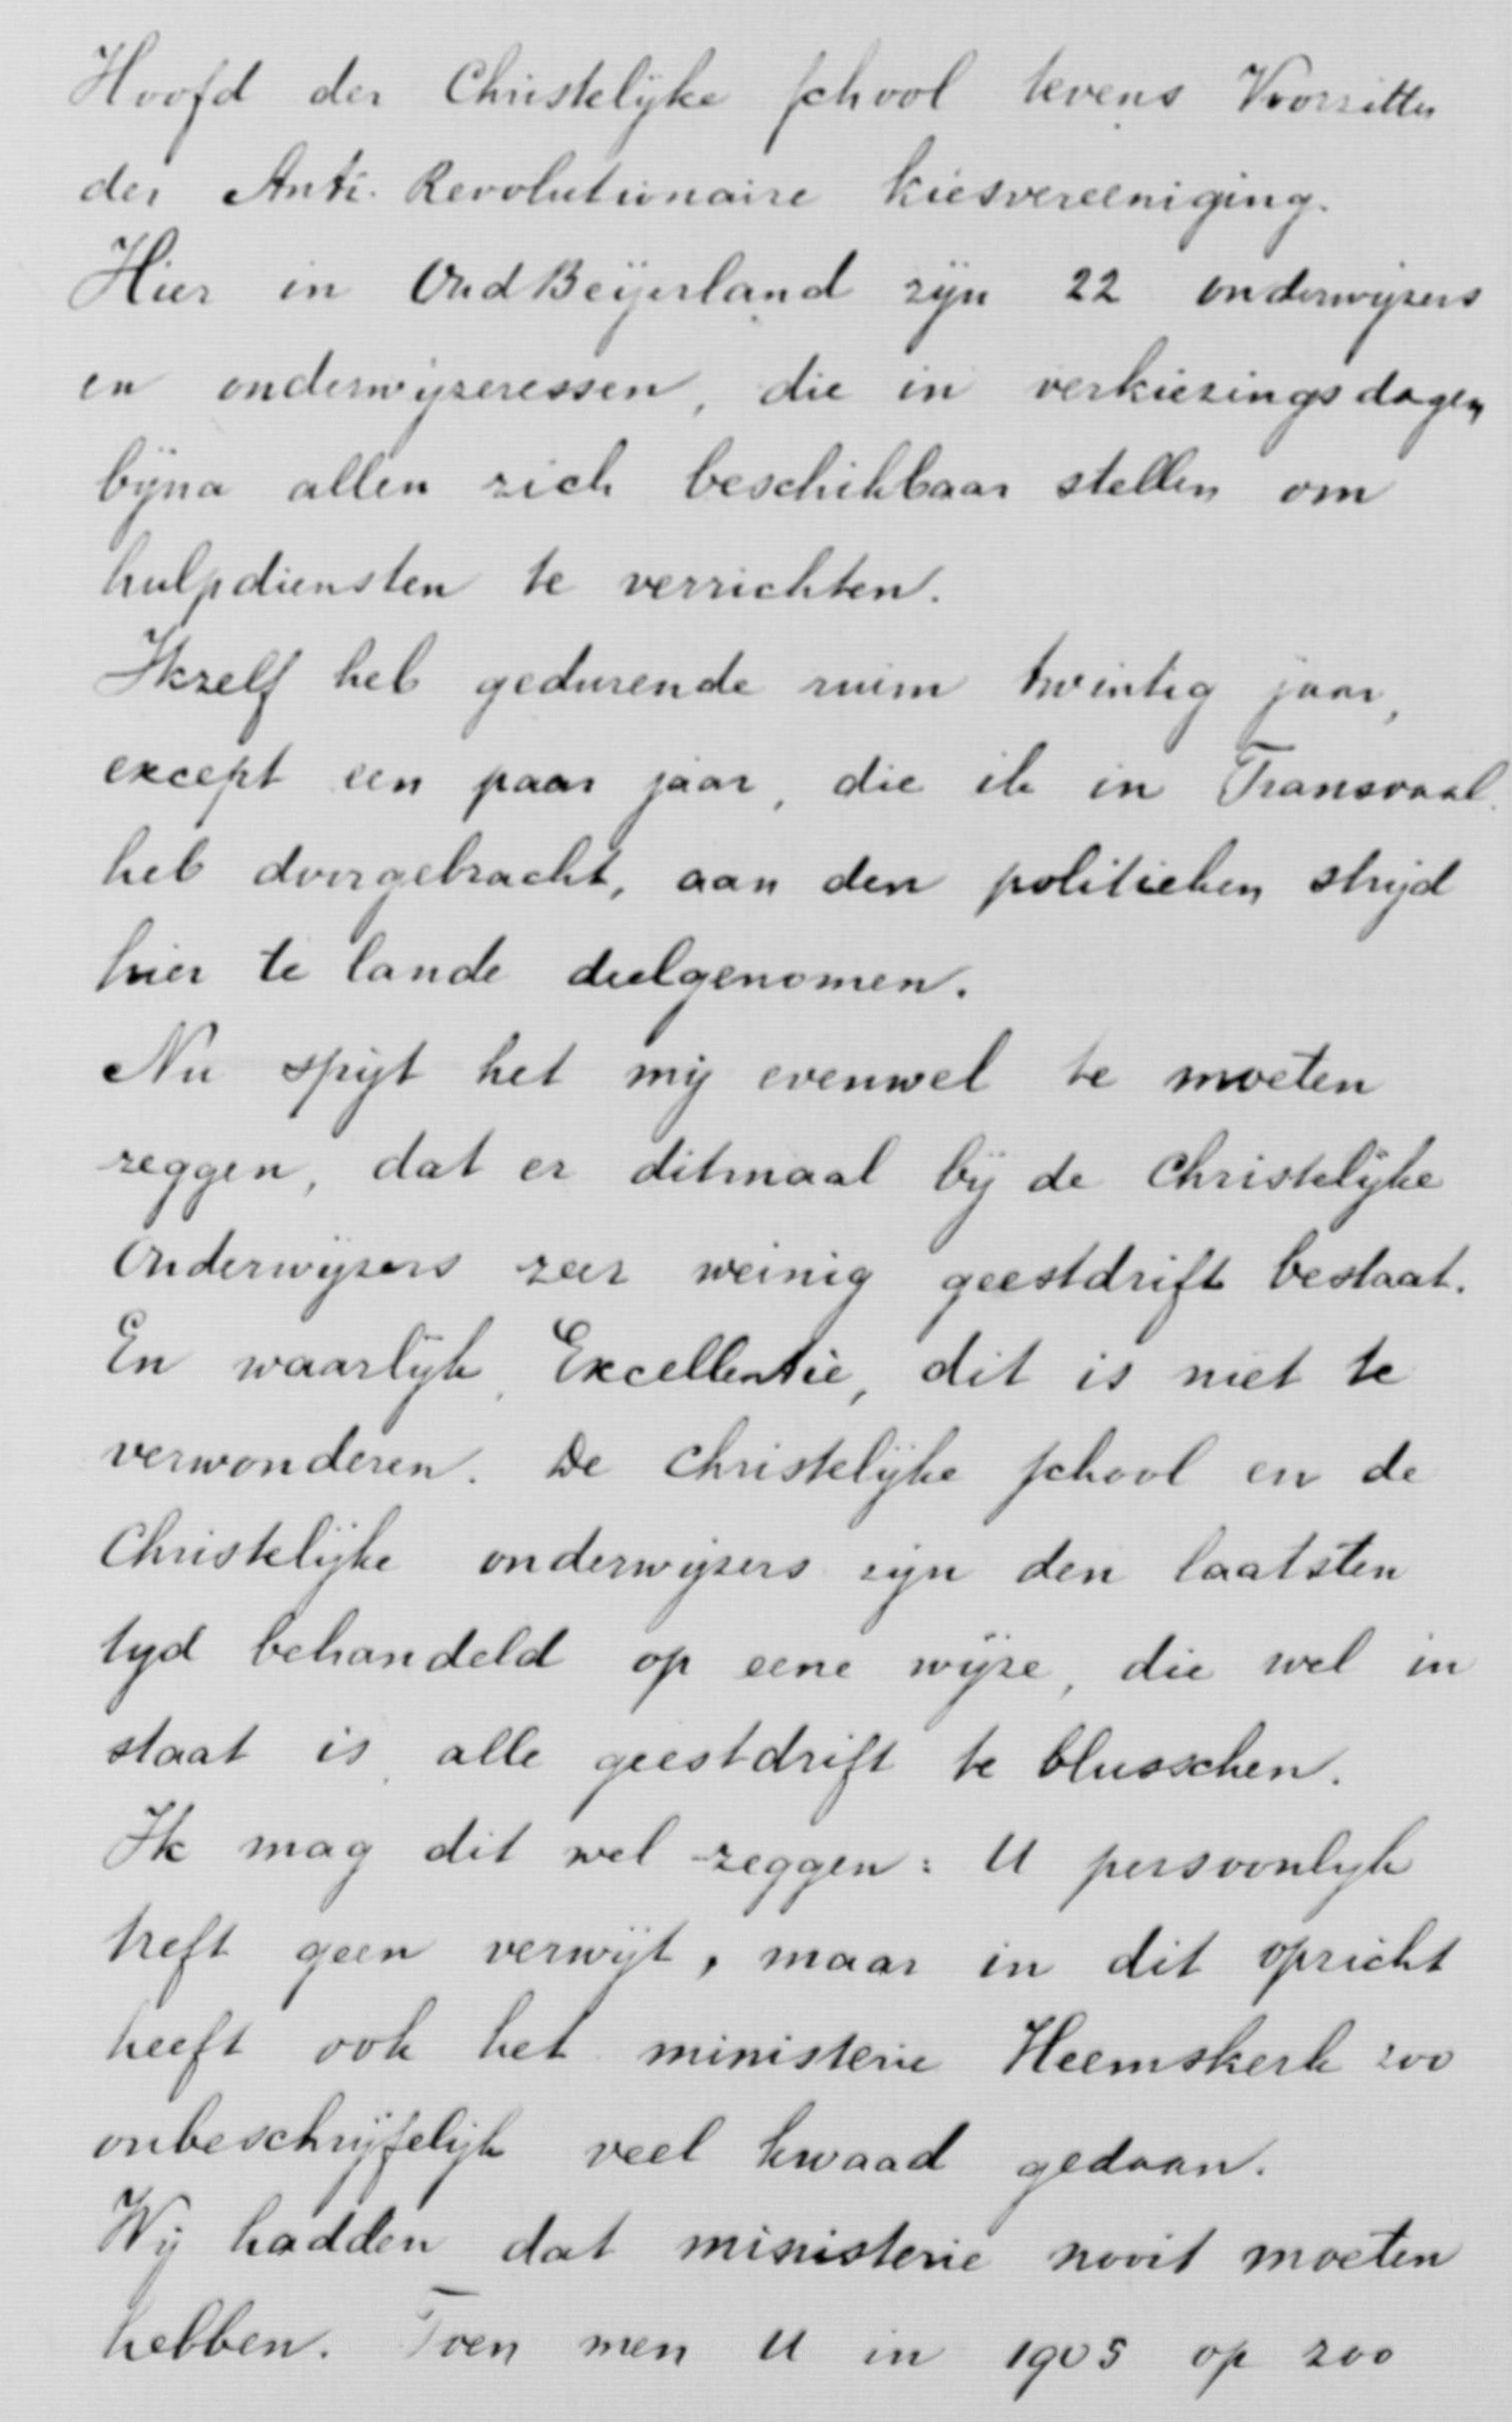 Hoofd der Christelijke School tevens Voorzitter
der Anti-Revolutionaire Kiesvereeniging.
Hier in Oud Beijerland zijn 22 onderwijzers
en onderwijzeressen, die in verkiezingsdagen
bijna allen zich beschikbaar stellen om
hulpdiensten te verrichten.
Ikzelf heb gedurende ruim twintig jaar,
except een paar jaar, die ik in Transvaal
heb doorgebracht, aan den politieken strijd
hier te lande deelgenomen.
Nu spijt het mij evenwel te moeten
zeggen, dat er ditmaal bij de Christelijke
Onderwijzers zeer weinig geestdrift bestaat.
En waarlijk, Excellentie, dit is niet te
verwonderen. De Christelijke School en de
Christelijke onderwijzers zijn den laatsten
tijd behandeld op eene wijze, die wel in
staat is, alle geestdrift te blusschen.
Ik mag dit wel zeggen: U persoonlijk
treft geen verwijt, maar in dit opzicht
heeft ook het ministerie Heemskerk zoo
onbeschrijfelijk veel kwaad gedaan.
Wij hadden dat ministerie nooit moeten
hebben. Toen men U in 1905 op zoo